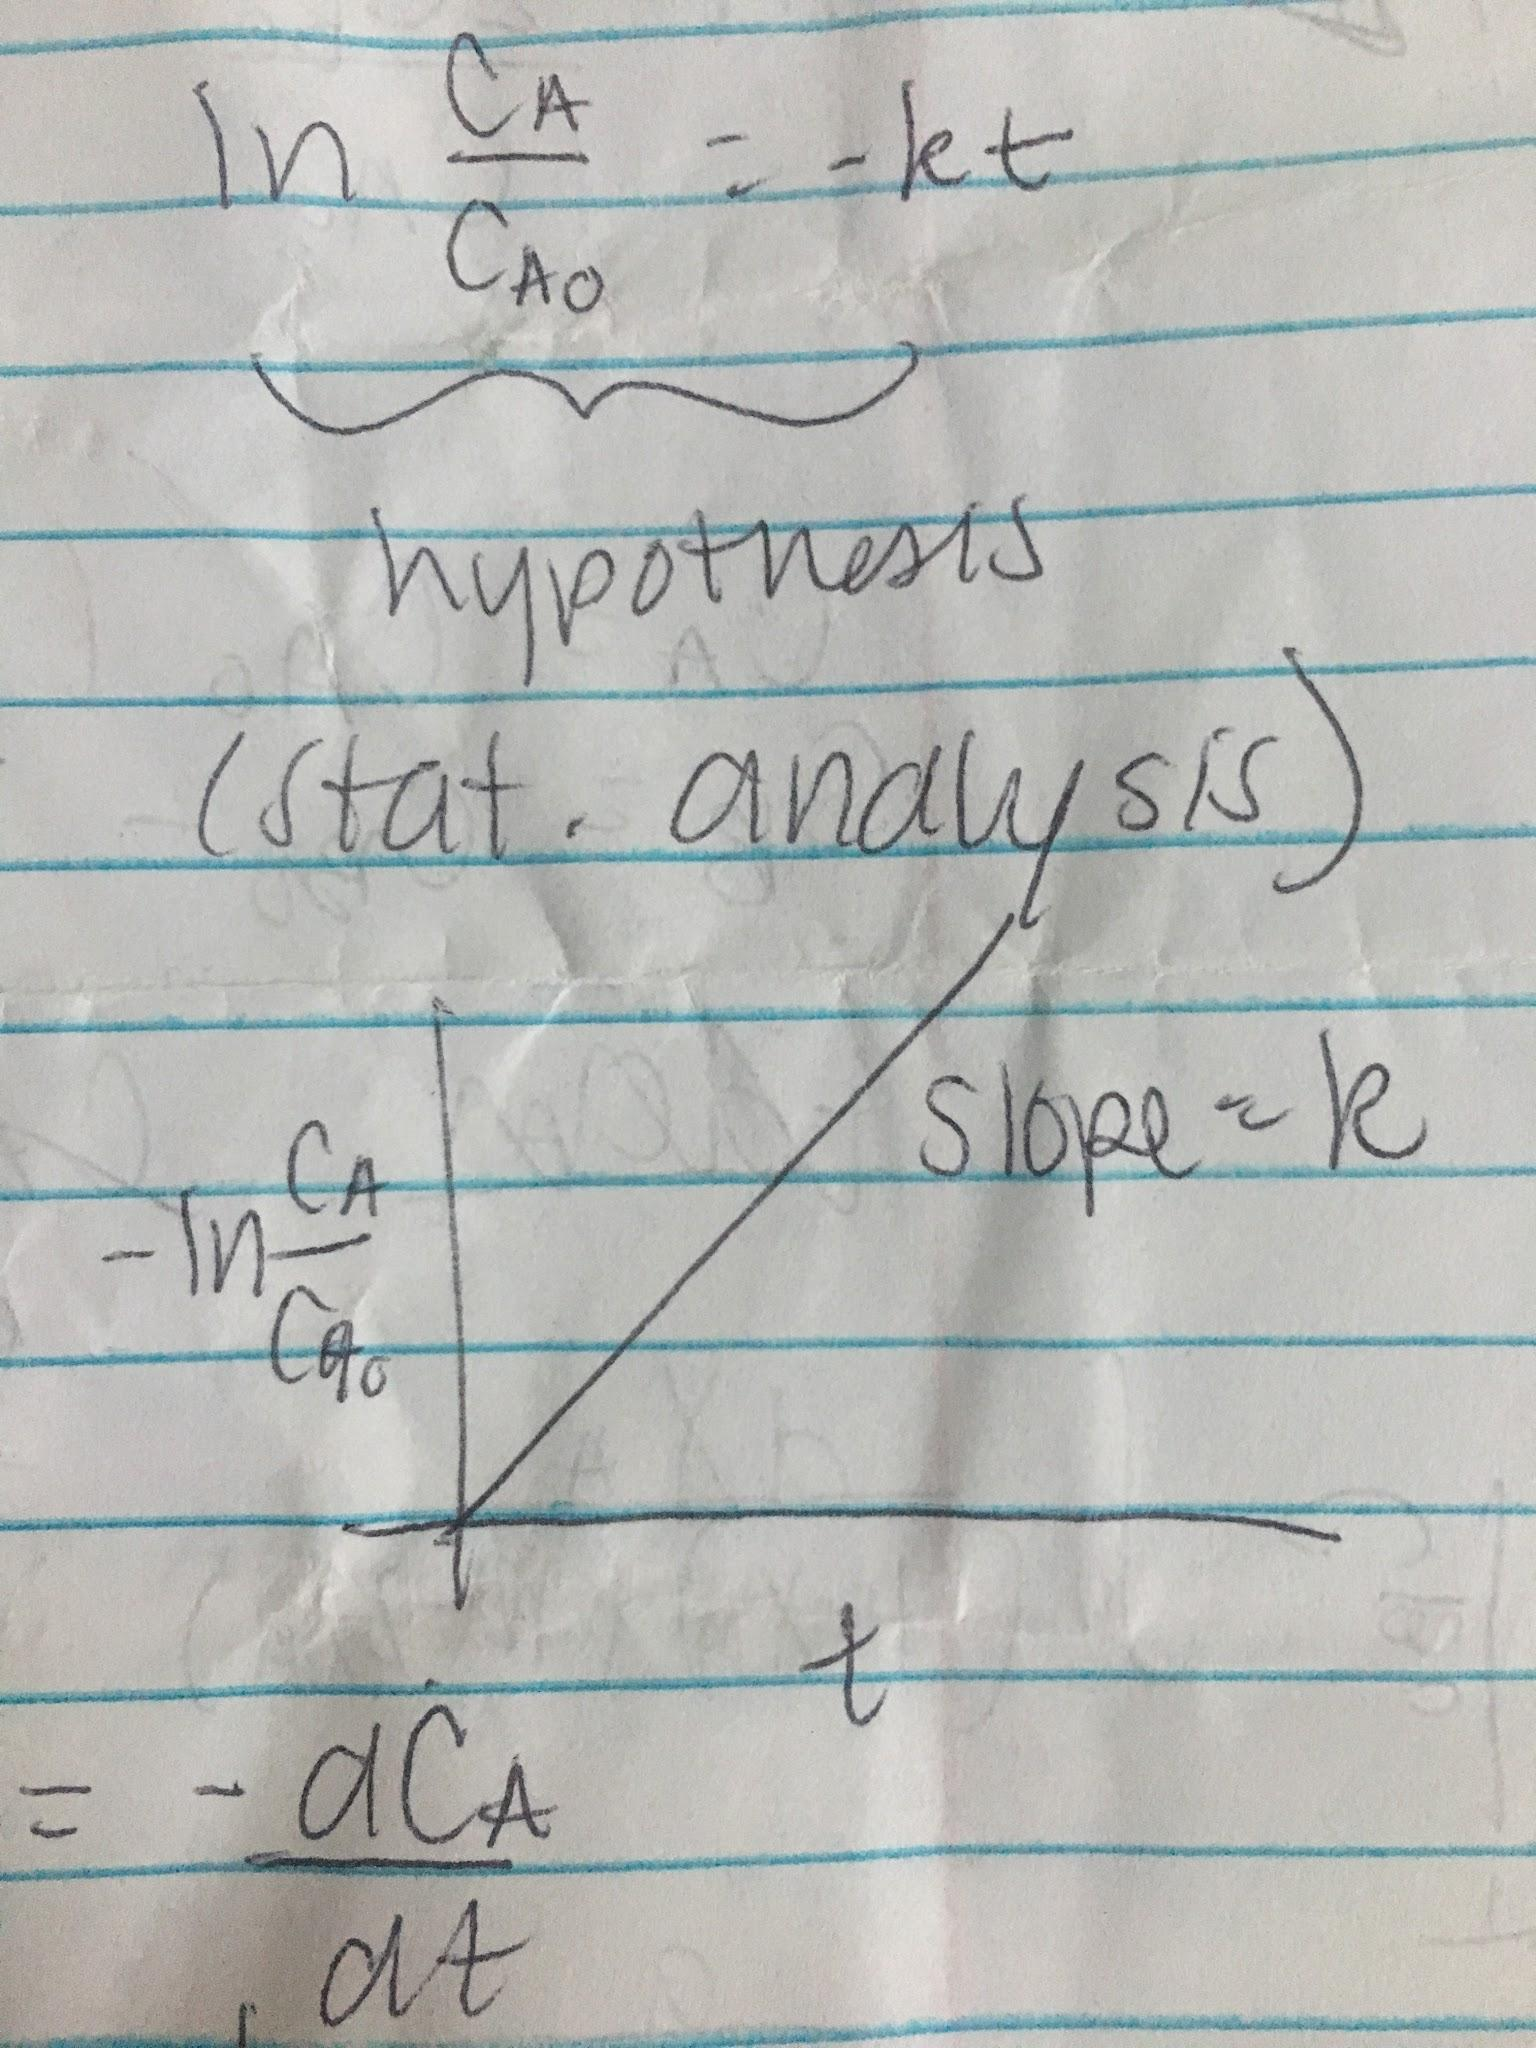 ln C_A / C_A0 = -kt
hypothesis
(stat. analysis)
slope = k
-ln C_A / C_A0
t
= - dC_A / dt